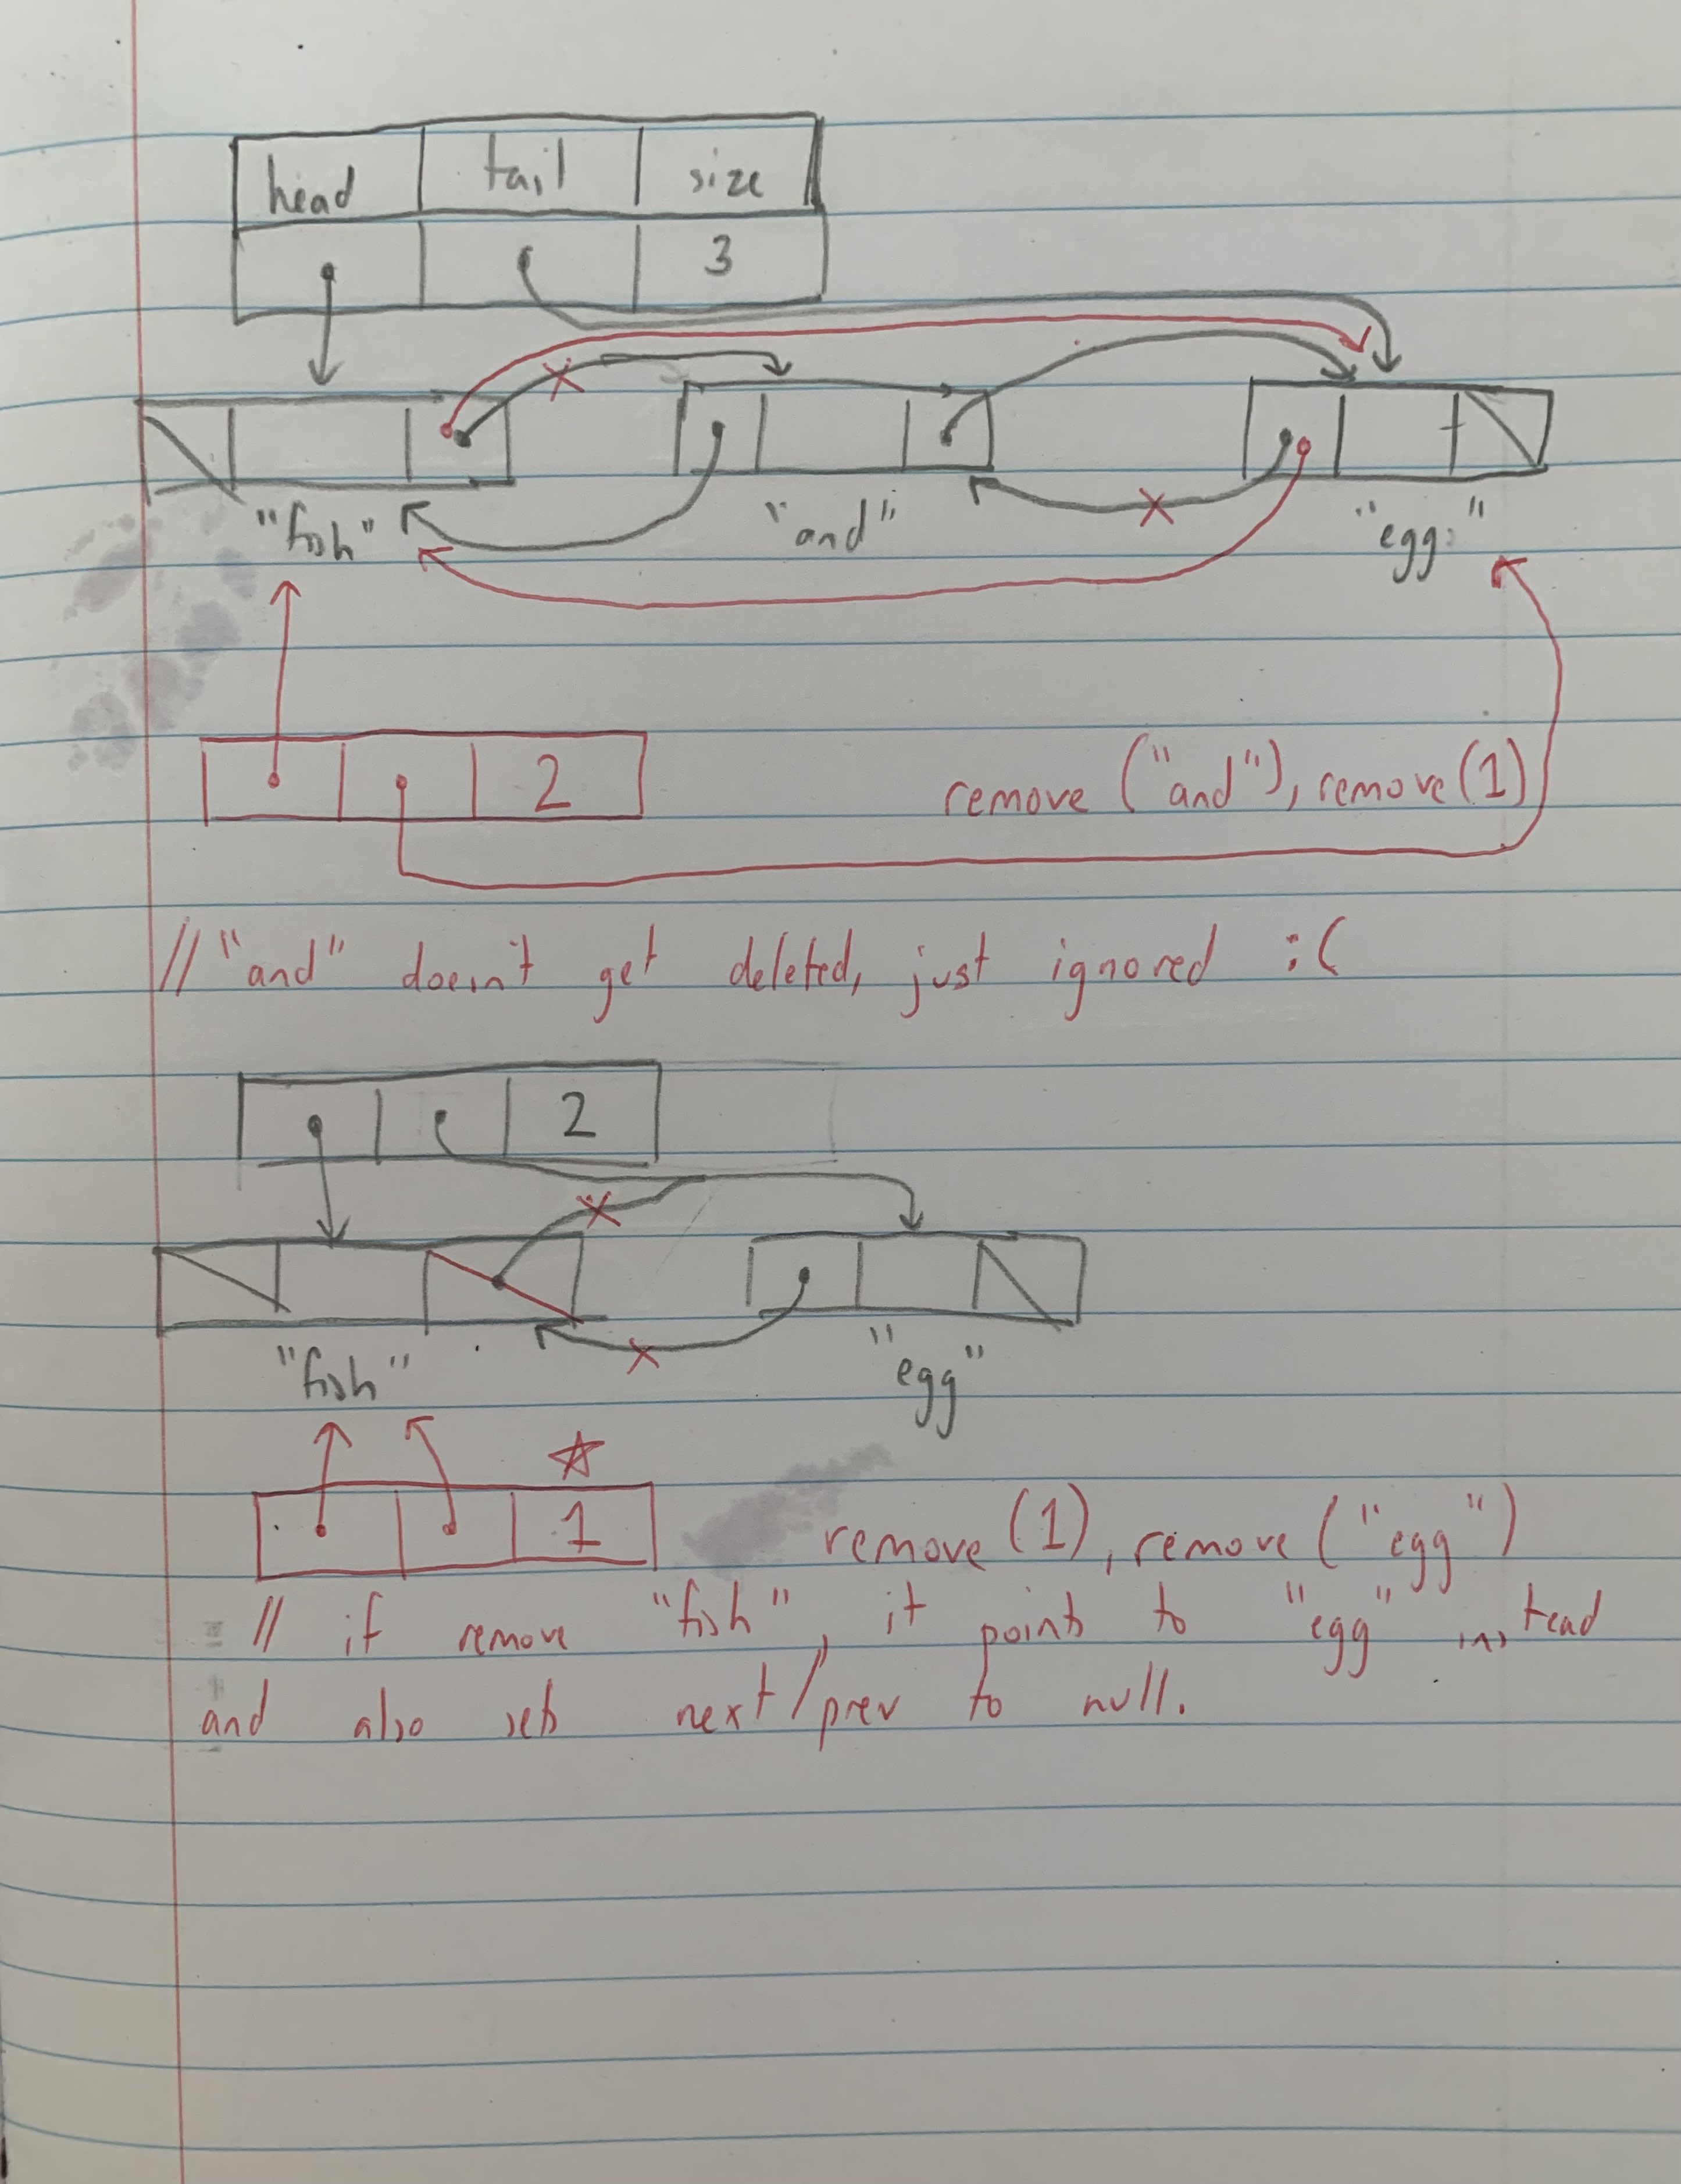 head tail size
3
"fish" "and" "egg"
2
remove ("and"), remove (1)
// "and" doesn't get deleted, just ignored :(
2
"fish" "egg"
1
remove (1), remove ("egg")
// if remove "fish", it points to "egg" instead
and also sets next/prev to null.